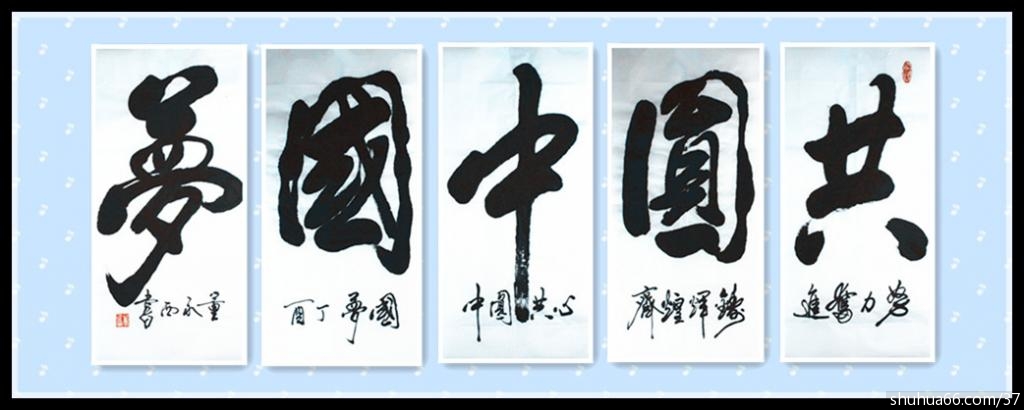 共圓中國夢
努力奮進
鑄輝煌齊
心共圓中
國夢丁酉
書
shuhua66.com/37